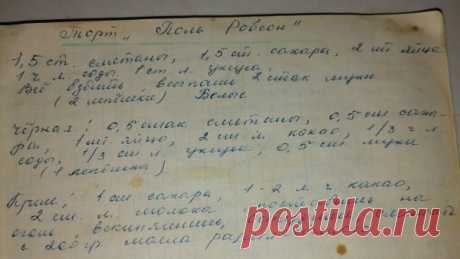 Торт „Поль Робсон"
1,5 ст. сметаны, 1,5 ст. сахара, 2 шт яйца
1 ч л. соды, 1 ст. л. уксуса,
Всё взбить, всыпать 2 стак муки
(2 лепёшки) Белые
Чёрная: 0,5 стак сметаны, 0,5 ст саха-
ра, 1 шт яйцо, 2 ст л. какао, 1/3 ч л
соды, 1/3 ст л. уксуса, 0,5 ст. муки
(1 лепёшка)
Крем: 1 ст. сахара, 1-2 л. ч. какао,
2 ст. л. молока на
огонь вскипятить,
с 200 гр масла
postila.ru